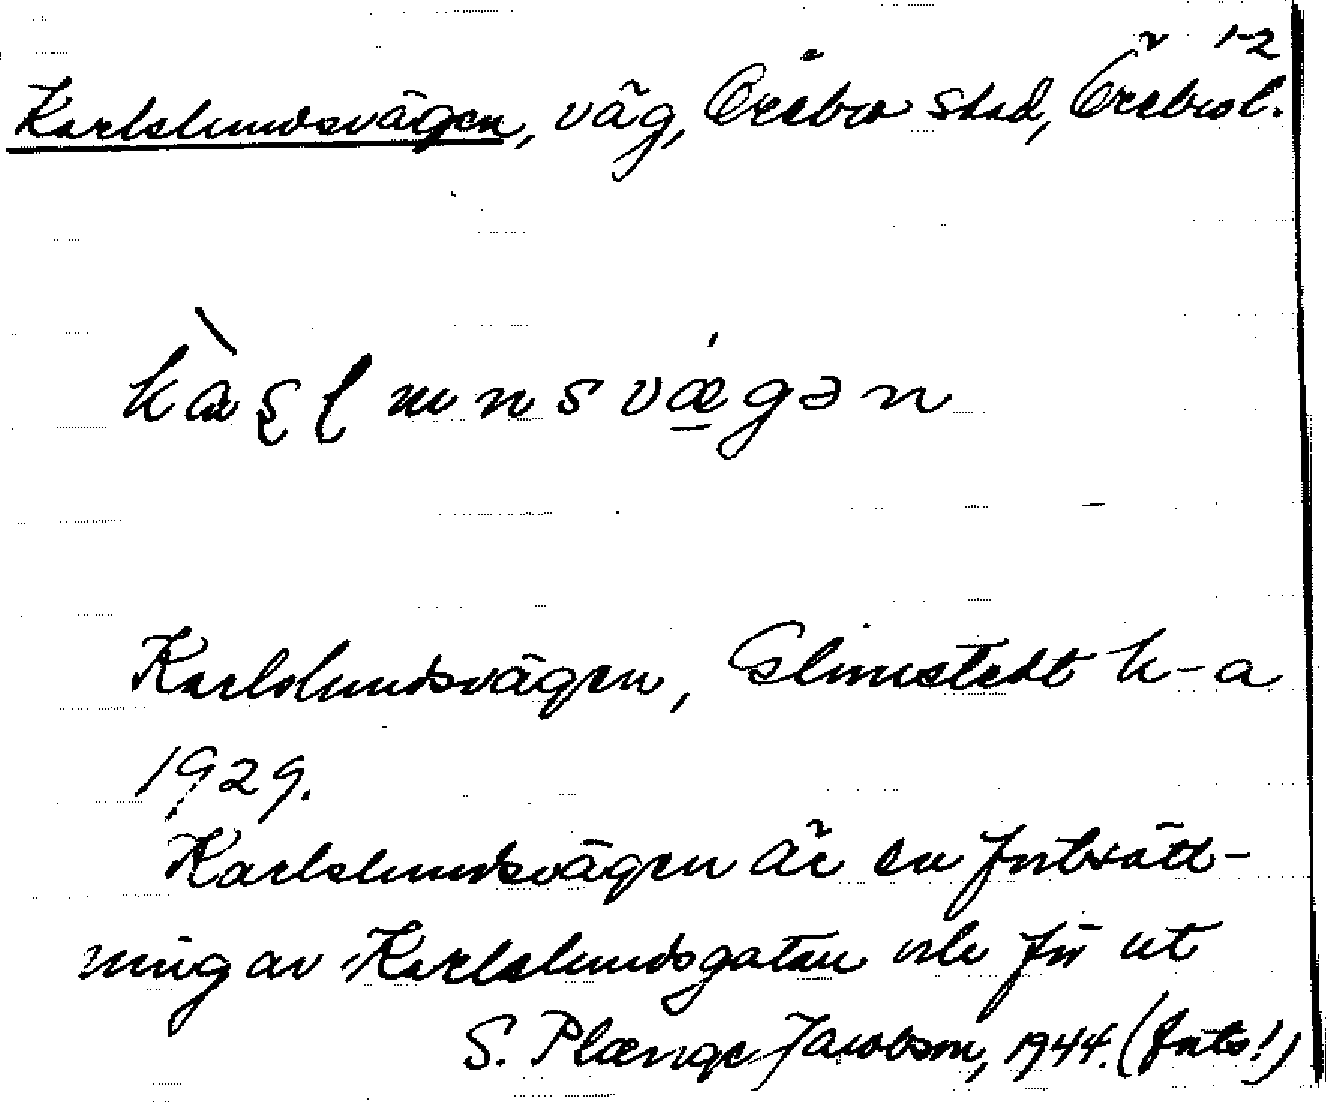 1-2
Karlslundsvägen, väg, Örebro stad, Örebro l.
kàʂɭunsvægən
Karlslundsvägen, Glimstedt k-a
1929.
Karlslundsvägen är en fortsätt-
ning av Karlslundsgatan och för ut
S. Plænge Jacobson, 1944. (forts!)